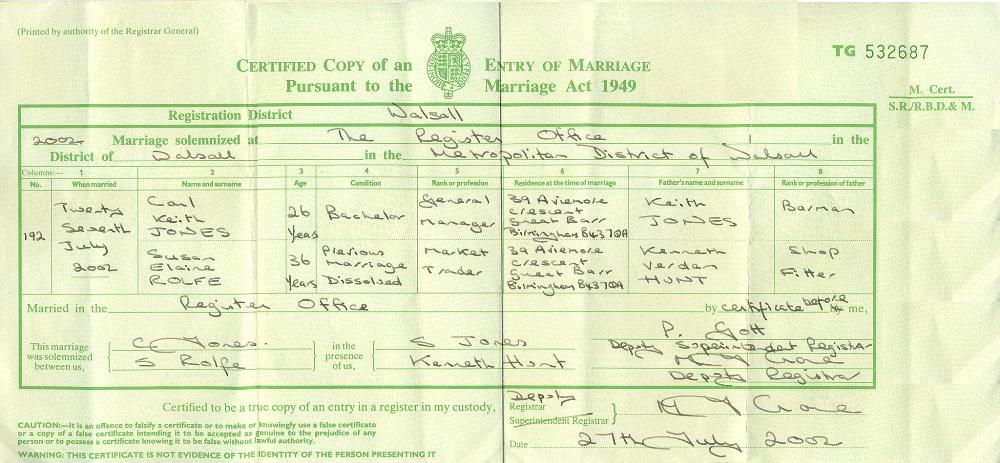 (Printed by authority of the Registrar General)
TG 532687
CERTIFIED COPY OF AN ENTRY OF MARRIAGE
Pursuant to the Marriage Act 1949
M. Cert.
S.R./R.B.D.& M.
Registration District Walsall
2002 Marriage solemnized at The Register Office in the
District of Walsall in the Metropolitan District of Walsall
Columns:— 1 2 3 4 5 6 7 8
No. When married Name and surname Age Condition Rank or profession Residence at the time of marriage Father's name and surname Rank or profession of father
192
Twenty
Seventh
July
2002
Carl
Keith
JONES
26
Years
Bachelor
General
Manager
39 Aviemore
Crescent
Great Barr
Birmingham B43 7QA
Keith
JONES
Barman
Susan
Elaine
ROLFE
36
Years
Previous
Marriage
Dissolved
Market
Trader
39 Aviemore
Crescent
Great Barr
Birmingham B43 7QA
Kenneth
HUNT
Shop
Fitter
Married in the Register Office by certificate before me,
This marriage
was solemnized
between us,
C Jones.
S Rolfe
in the
presence
of us,
S Jones
Kenneth Hunt
P. Gott
Deputy Superintendent Registrar
Crane
Deputy Registrar
Certified to be a true copy of an entry in a register in my custody,
Deputy
Registrar
Superintendent Registrar
Crane
Date 27th July 2002
CAUTION:—It is an offence to falsify a certificate or to make or knowingly use a false certificate
or a copy of a false certificate intending it to be accepted as genuine to the prejudice of any
person or to possess a certificate knowing it to be false without lawful authority.
WARNING: THIS CERTIFICATE IS NOT EVIDENCE OF THE IDENTITY OF THE PERSON PRESENTING IT